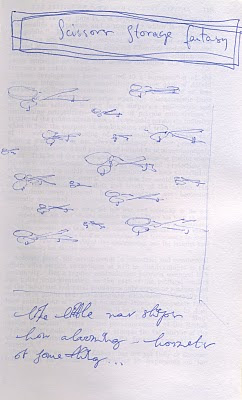 Scissors Storage fantasy
like little war ships
how alarming – hornets
or something...